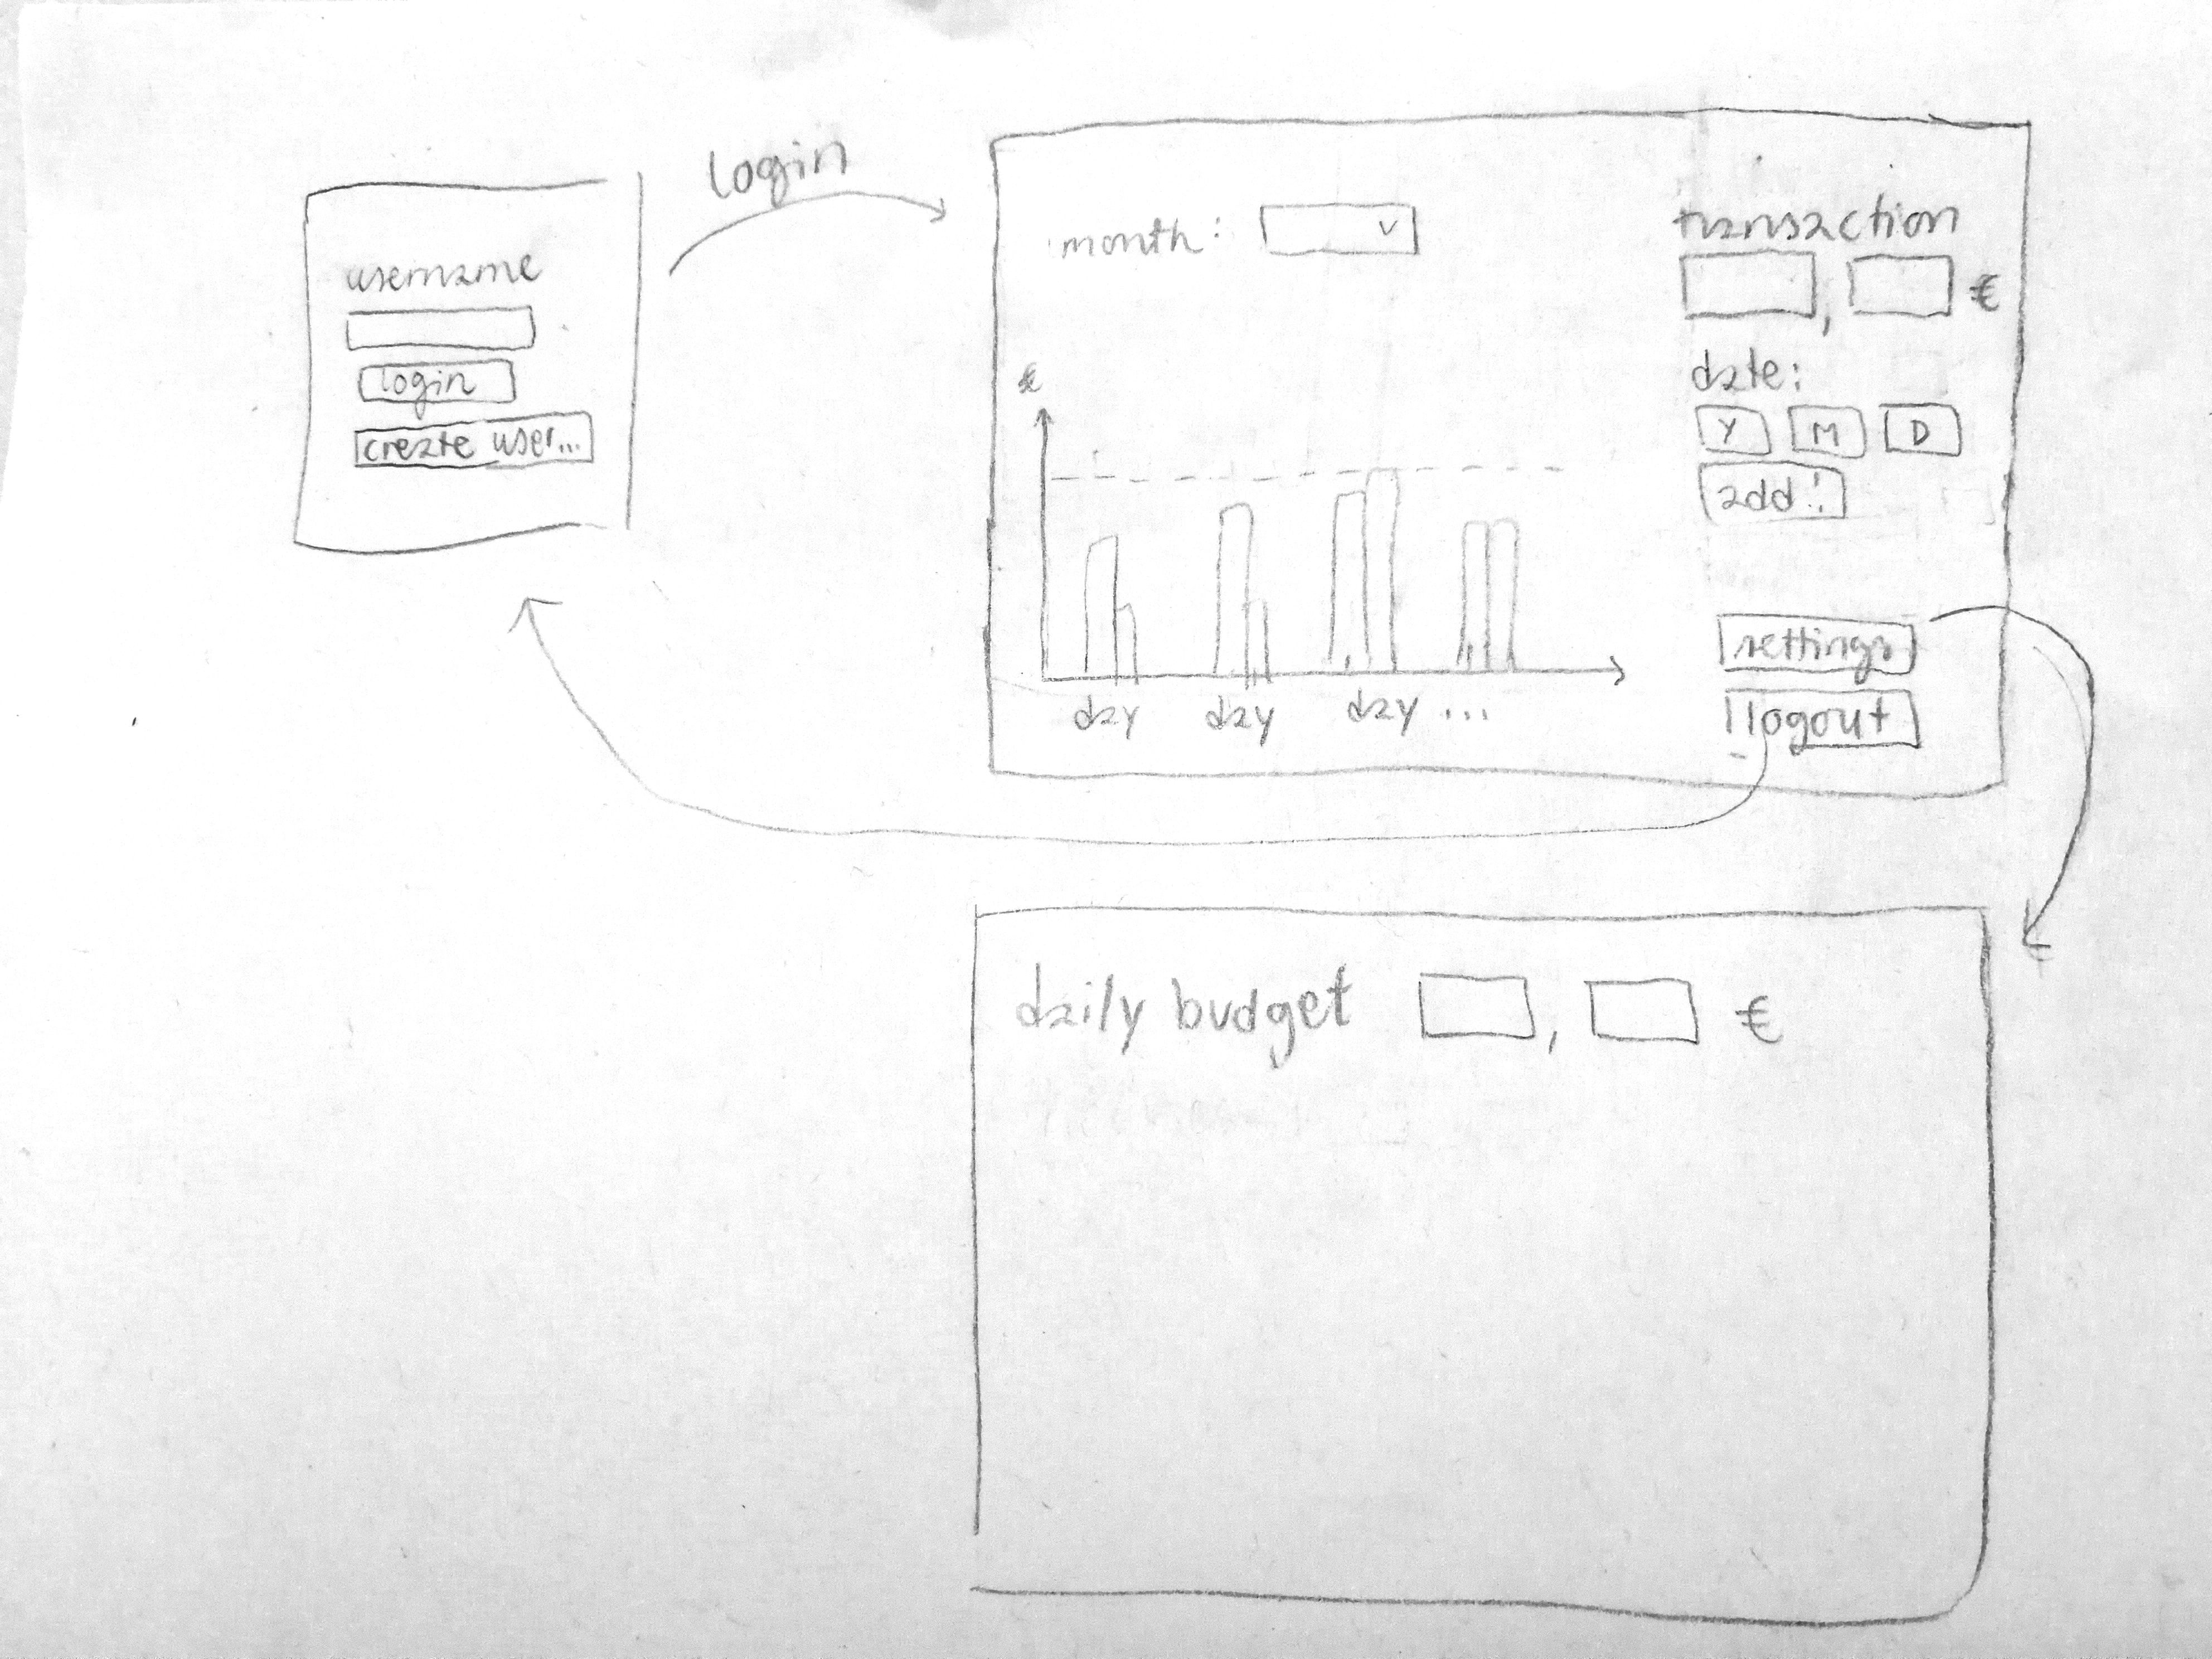 username
login
create user...
login
month: v
€
day day day ...
transaction
, €
date:
Y M D
add!
settings
logout
daily budget , €